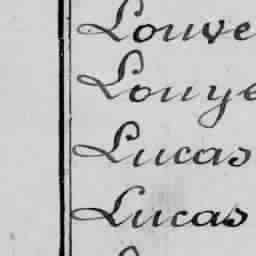 Louve
Louye
Lucas
Lucas